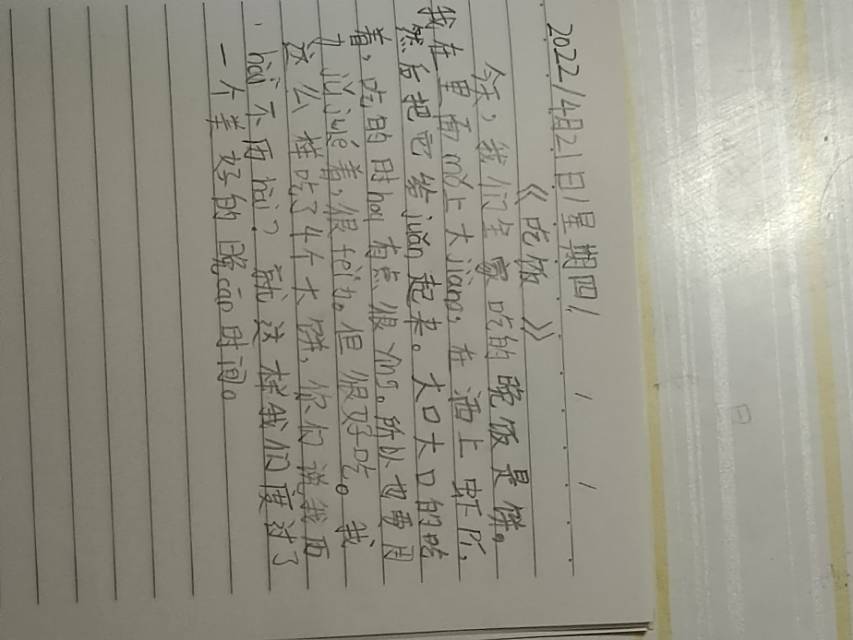 2022/4月21日/星期四/
《吃饭》
今天,我们全家吃的晚饭是饼。
我在里面mǒ上大jiàng,在洒上虾pí,
然后把它给juǎn起来。大口大口的吃
着,吃的时hou有点很yìng。所以也要用
力jǔjué着,很fèi力。但很好吃。我
这么样吃了4个大饼,你们说我历
hai不历hai?就这样我们度过了
一个美好的晚cān时间。